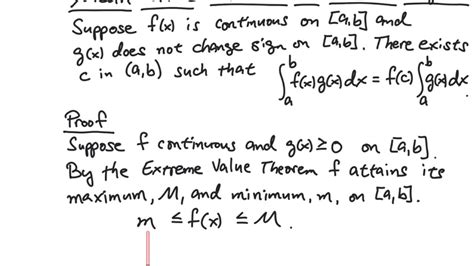 Suppose f(x) is continuous on [a,b] and
g(x) does not change sign on [a,b]. There exists
c in (a,b) such that ∫_a^b f(x)g(x)dx = f(c)∫_a^b g(x)dx
Proof
Suppose f continuous and g(x) ≥ 0 on [a,b].
By the Extreme Value Theorem f attains its
maximum, M, and minimum, m, on [a,b].
m ≤ f(x) ≤ M.